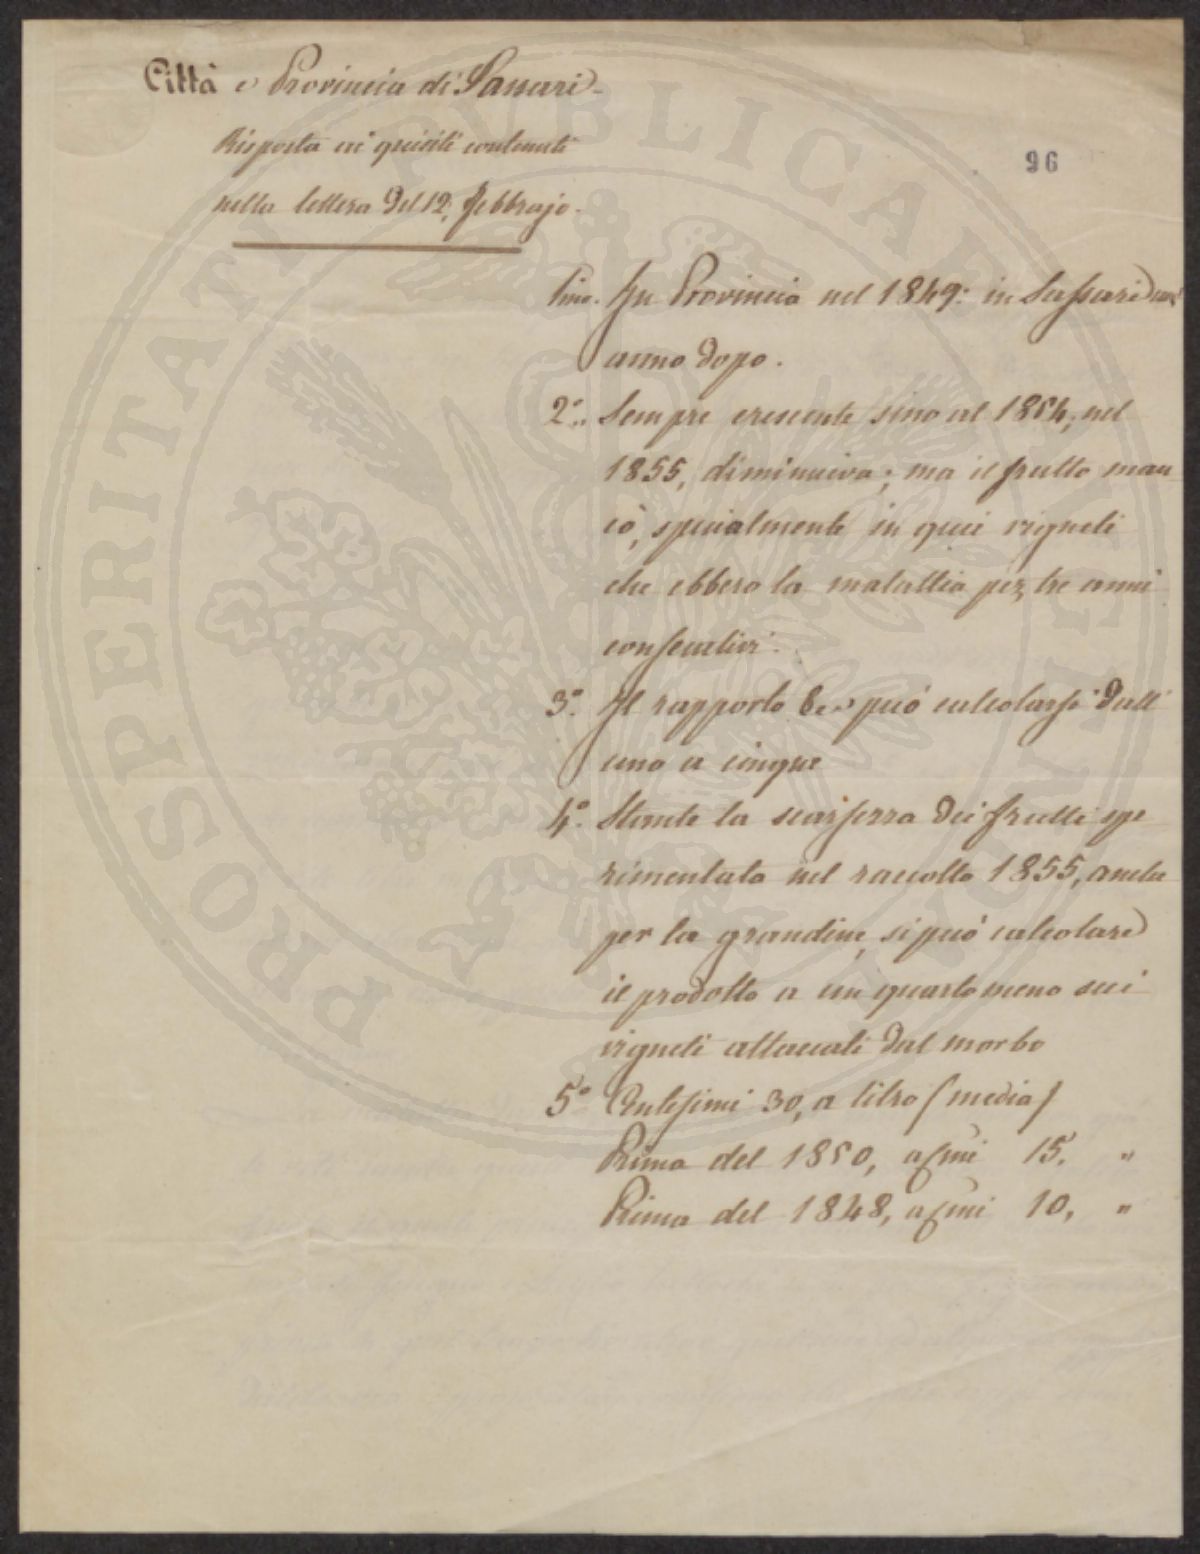 Città e Provincia di Sassari
Risposta ai quisiti contenuti
96
nella lettera del 12, febbrajo.
Pmo. In Provincia nel 1849: in Sassari un'
anno dopo.
2°.. Sempre crescente sino al 1854; nel
1855, diminuiva; ma il frutto man
cò, specialmente in quei vigneti
che ebbero la malattia per tre anni
consecutivi.
3°. Il rapporto può calcolarsi dall'
uno a cinque
4°. Stante la scarsezza dei frutti spe
rimentata nel raccolto 1855, anche
per la grandine, si può calcolare
il prodotto a un quarto meno sui
vigneti attaccati dal morbo
5° Centesimi 30, a litro (media)
Prima del 1850, a 15. "
Prima del 1848, a 10, "
PROSPERITATI PUBLICAE AUGENDAE